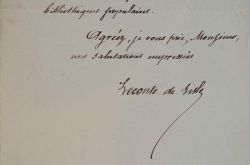 bibliothèque populaire.
Agréez, je vous prie, Monsieur,
mes salutations empressées
Leconte de Lisle